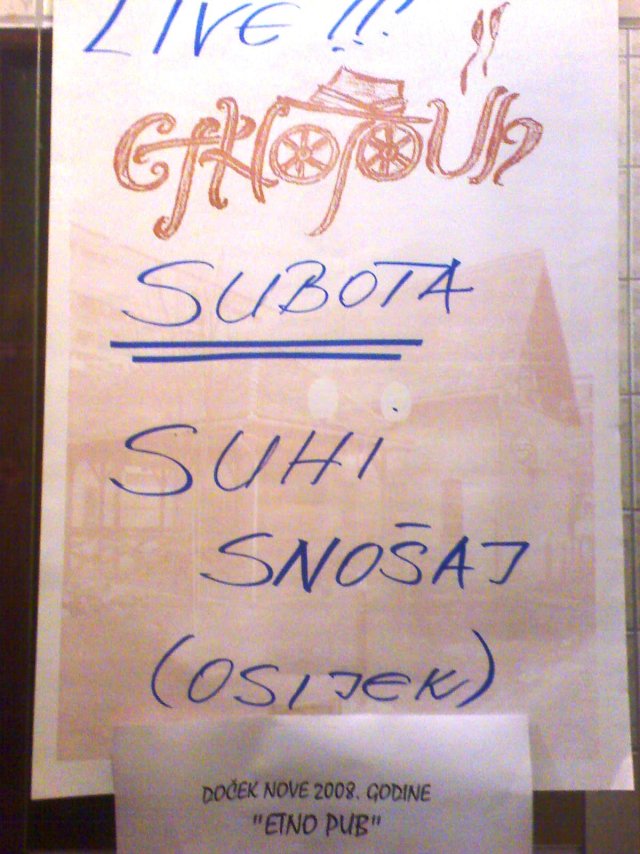 LIVE!!!
SUBOTA
SUHI
SNOŠAJ
(OSIJEK)
DOČEK NOVE 2008. GODINE
"ETNO PUB"